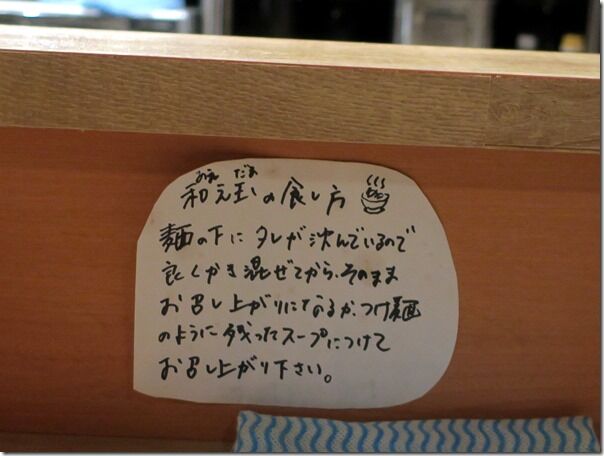 あえ だま
和え玉の食し方
麺の下にタレが沈んでいるので
良くかき混ぜてから、そのまま
お召し上がりになるか、つけ麺
のように残ったスープにつけて
お召し上がり下さい。